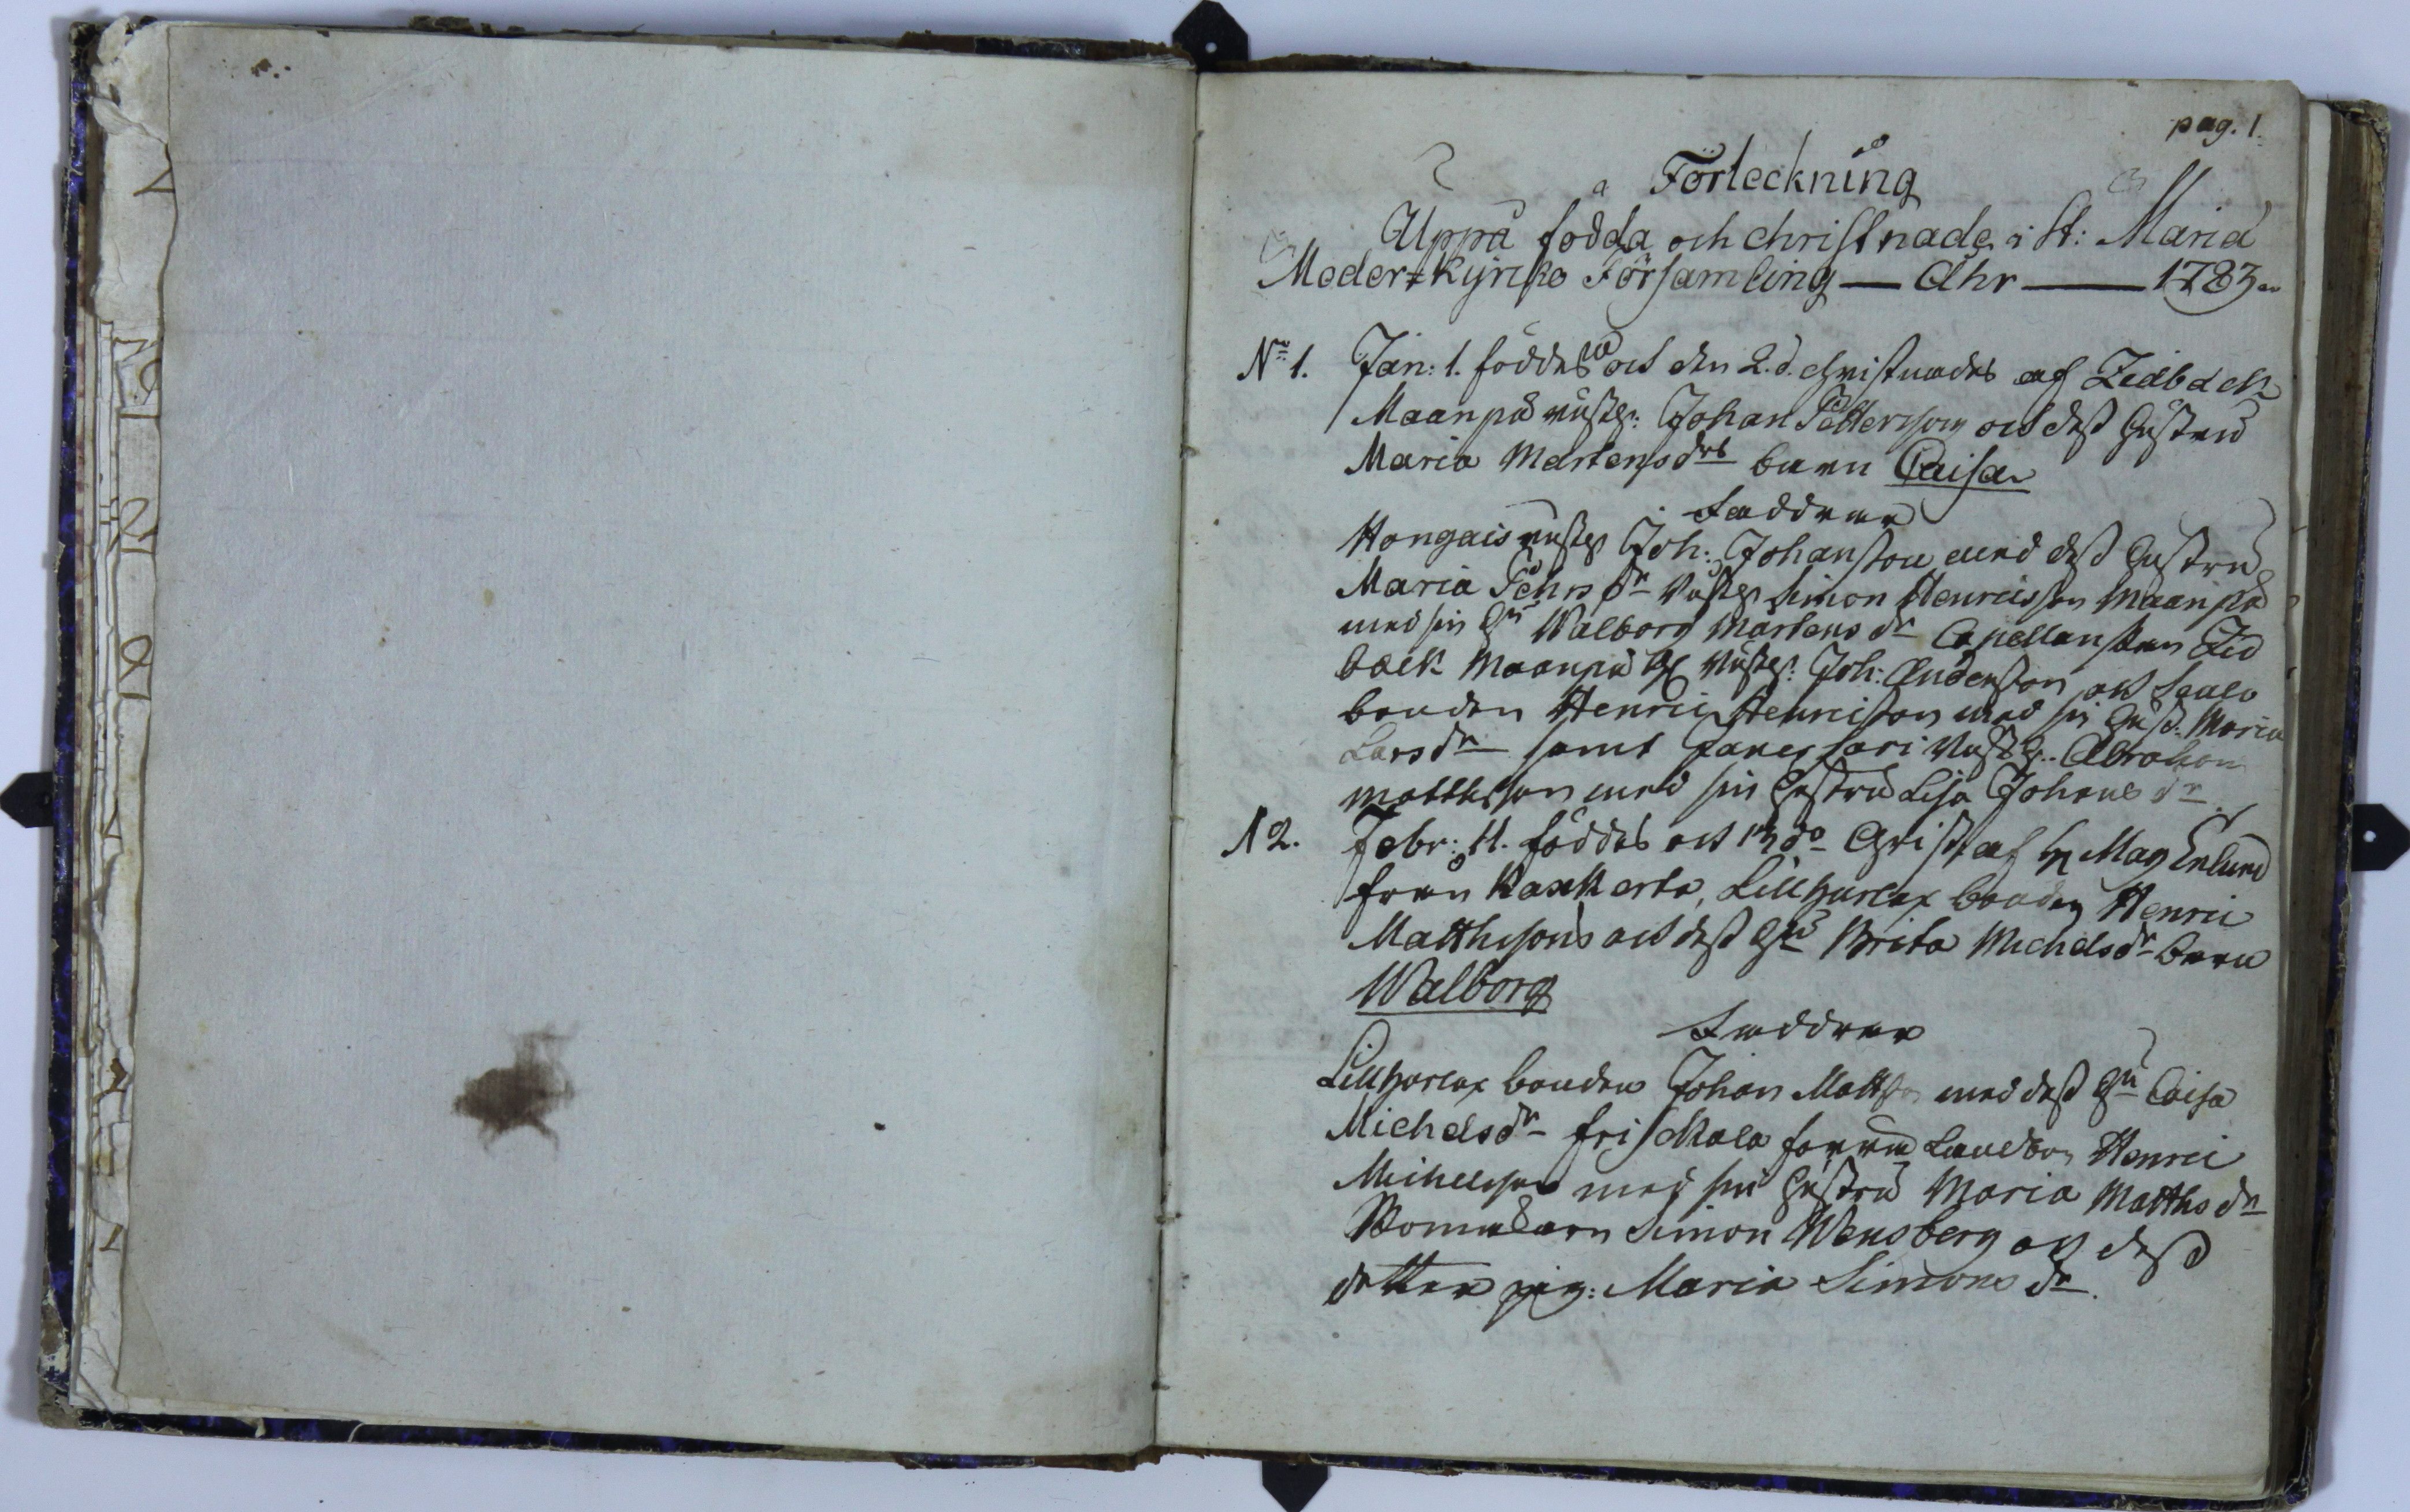 pag. 1.
Förteckning
Uppå födda och christnade i St: Mariæ
Moder-Kyrcko Församling — Åhr — 1783.
No 1. Jan: 1. föddes och den 2. d. christnades af Zidbäck
Maanpä rusth: Johan Pettersson och dess hustru
Maria Mårtensdrs barn Caisa
Faddrar
Hongais rusth Joh: Johansson med dess hustru
Maria Pehrs dr Rusth Simon Henricsson Maanpä
med sin hu Walborg Mårtens dr Capellanskan Zid
bäck Maanpä Rusth: Joh: Andersson och
bonden Henric Henricsson med sin hust. Maria
Lars dr samt Rusth: Abraham
Mattsson med sin hustru Lisa Johans dr
N 2. Febr: 11. föddes och 13 do Christ. af H Mag Enlund
från Kaxkerta, Lillharlax bonden Henric
Matthssons och dess hu Brita Michels dr barn
Walborg
Faddrar
Lillharlax bonden Johan Matts med dess hu Caisa
Michels dr Friskala Landbon Henric
Michelsson med sin hustru Maria Matths dr
Simon Wensberg och dess
dotter pig: Maria Simons dr.